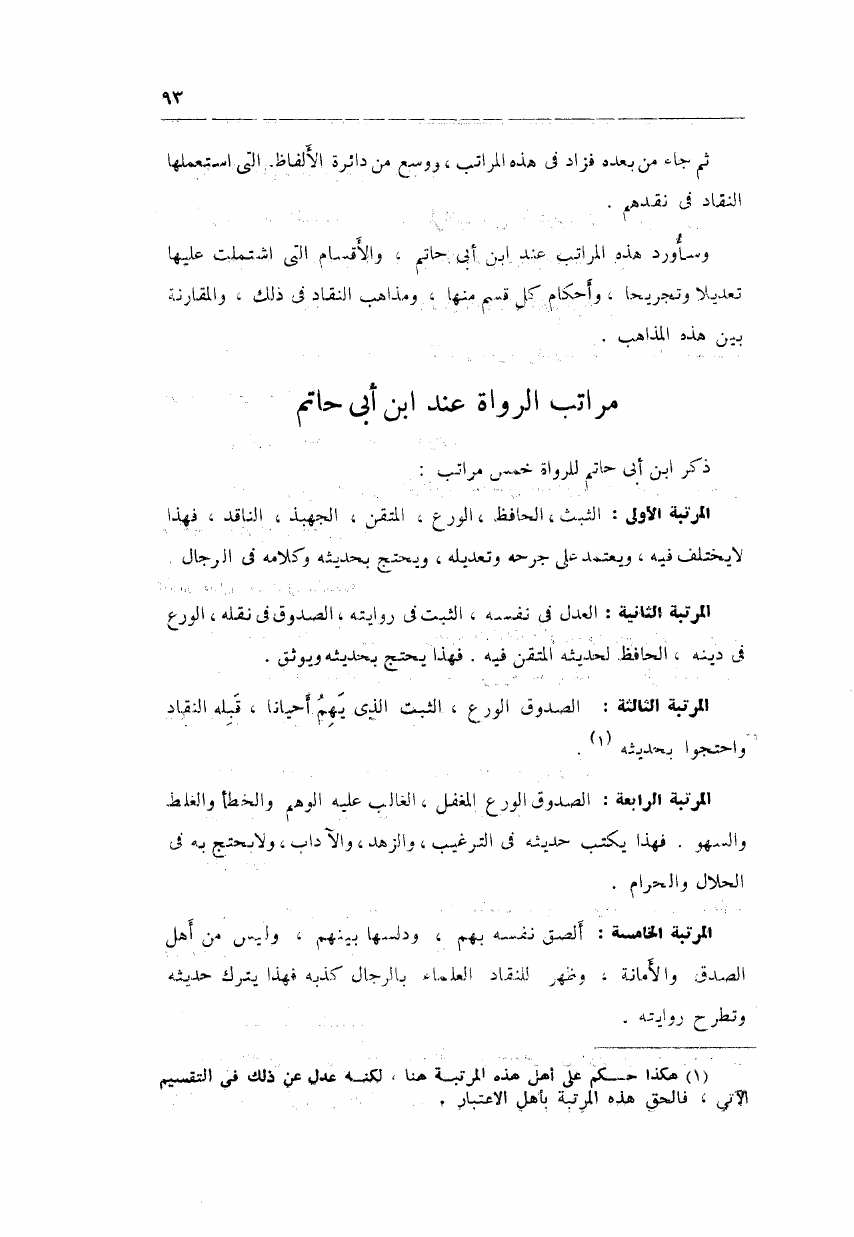 ٩٣
ثم جاء من بعده فزاد فى هذه المراتب ، ووسع من دائرة الأَلفاظ التى استعملها
النقاد فى نقدهم .
وسأُورد هذه المراتب عند ابن أَبى حاتم ، والأَقسام التى اشتملت عليها
تعديلا وتجريحا ، وأَحكام كل قسم منها ، ومذاهب النقاد فى ذلك ، والمقارنة
بين هذه المذاهب .
مراتب الرواة عند ابن أَبى حاتم
ذكر ابن أَبى حاتم للرواة خمس مراتب :
المرتبة الأولى : الثبث ، الحافظ ، الورع ، المتقن ، الجهبذ ، الناقد ، فهذا
لايختلف فيه ، ويعتمد على جرحه وتعديله ، ويحتج بحديثه وكلامه فى الرجال .
المرتبة الثانية : العدل فى نفسه ، الثبت فى روايته ، الصدوق فى نقله ، الورع
فى دينه ، الحافظ لحديثه المتقن فيه . فهذا يحتج بحديثه ويوثق .
المرتبة الثالثة : الصدوق الورع ، الثبت الذى يَهِمُ أَحيانا ، قَبِله النقاد
واحتجوا بحديثه (١) .
المرتبة الرابعة : الصدوق الورع المغفل ، الغالب عليه الوهم والخطأ والغلط
والسهو . فهذا يكتب حديثه فى الترغيب ، والزهد ، والآداب ، ولايحتج به فى
الحلال والحرام .
المرتبة الخامسة : أَلصق نفسه بهم ، ودلسها بينهم ، وليس من أَهل
الصدق والأَمانة ، وظهر للنقاد العلماء بالرجال كذبه فهذا يترك حديثه
وتطرح روايته .
(١) هكذا حكم على أهل هذه المرتبة هنا ، لكنه عدل عن ذلك فى التقسيم
الآتي ، فالحق هذه المرتبة بأهل الاعتبار .